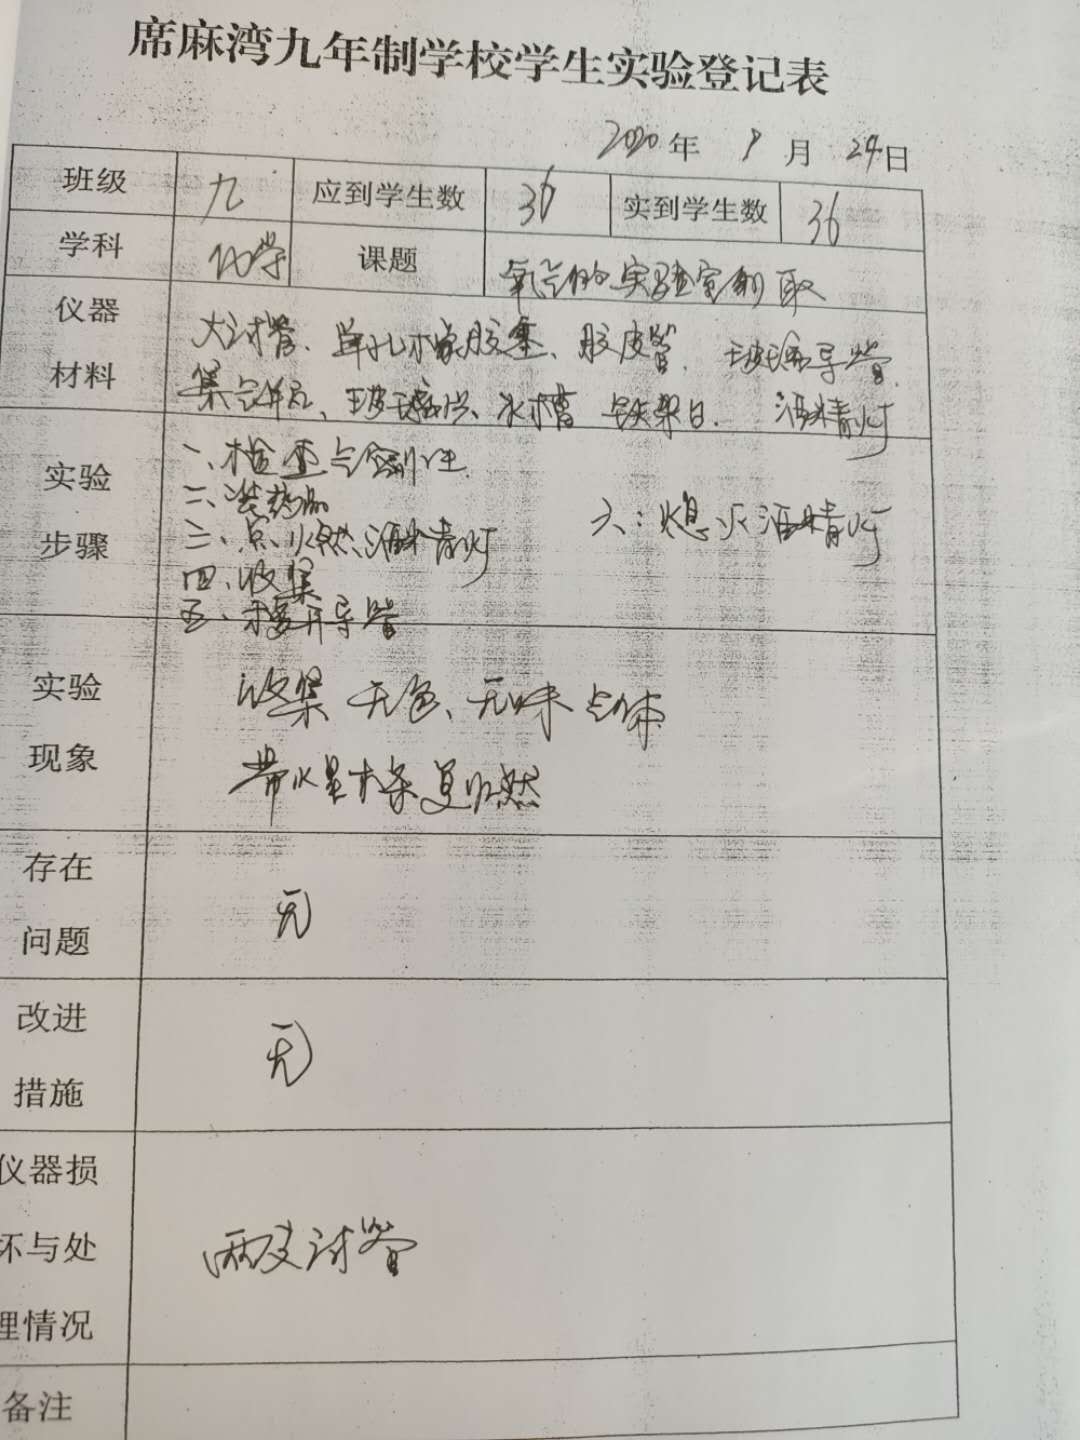 席麻湾九年制学校学生实验登记表
2020年 9月 24日
班级 九 应到学生数 36 实到学生数 36
学科 化学 课题 氧气的实验室制取
仪器材料 大试管、单孔橡胶塞、胶皮管、玻璃导管、
集气瓶、玻璃片、水槽 铁架台、 酒精灯
实验步骤 一、检查气密性
二、装药品
三、点燃酒精灯 六:熄灭酒精灯
四、收集
五、移开导管
实验现象 收集无色、无味气体
带火星木条复燃
存在问题 无
改进措施 无
仪器损坏与处理情况 两支试管
备注